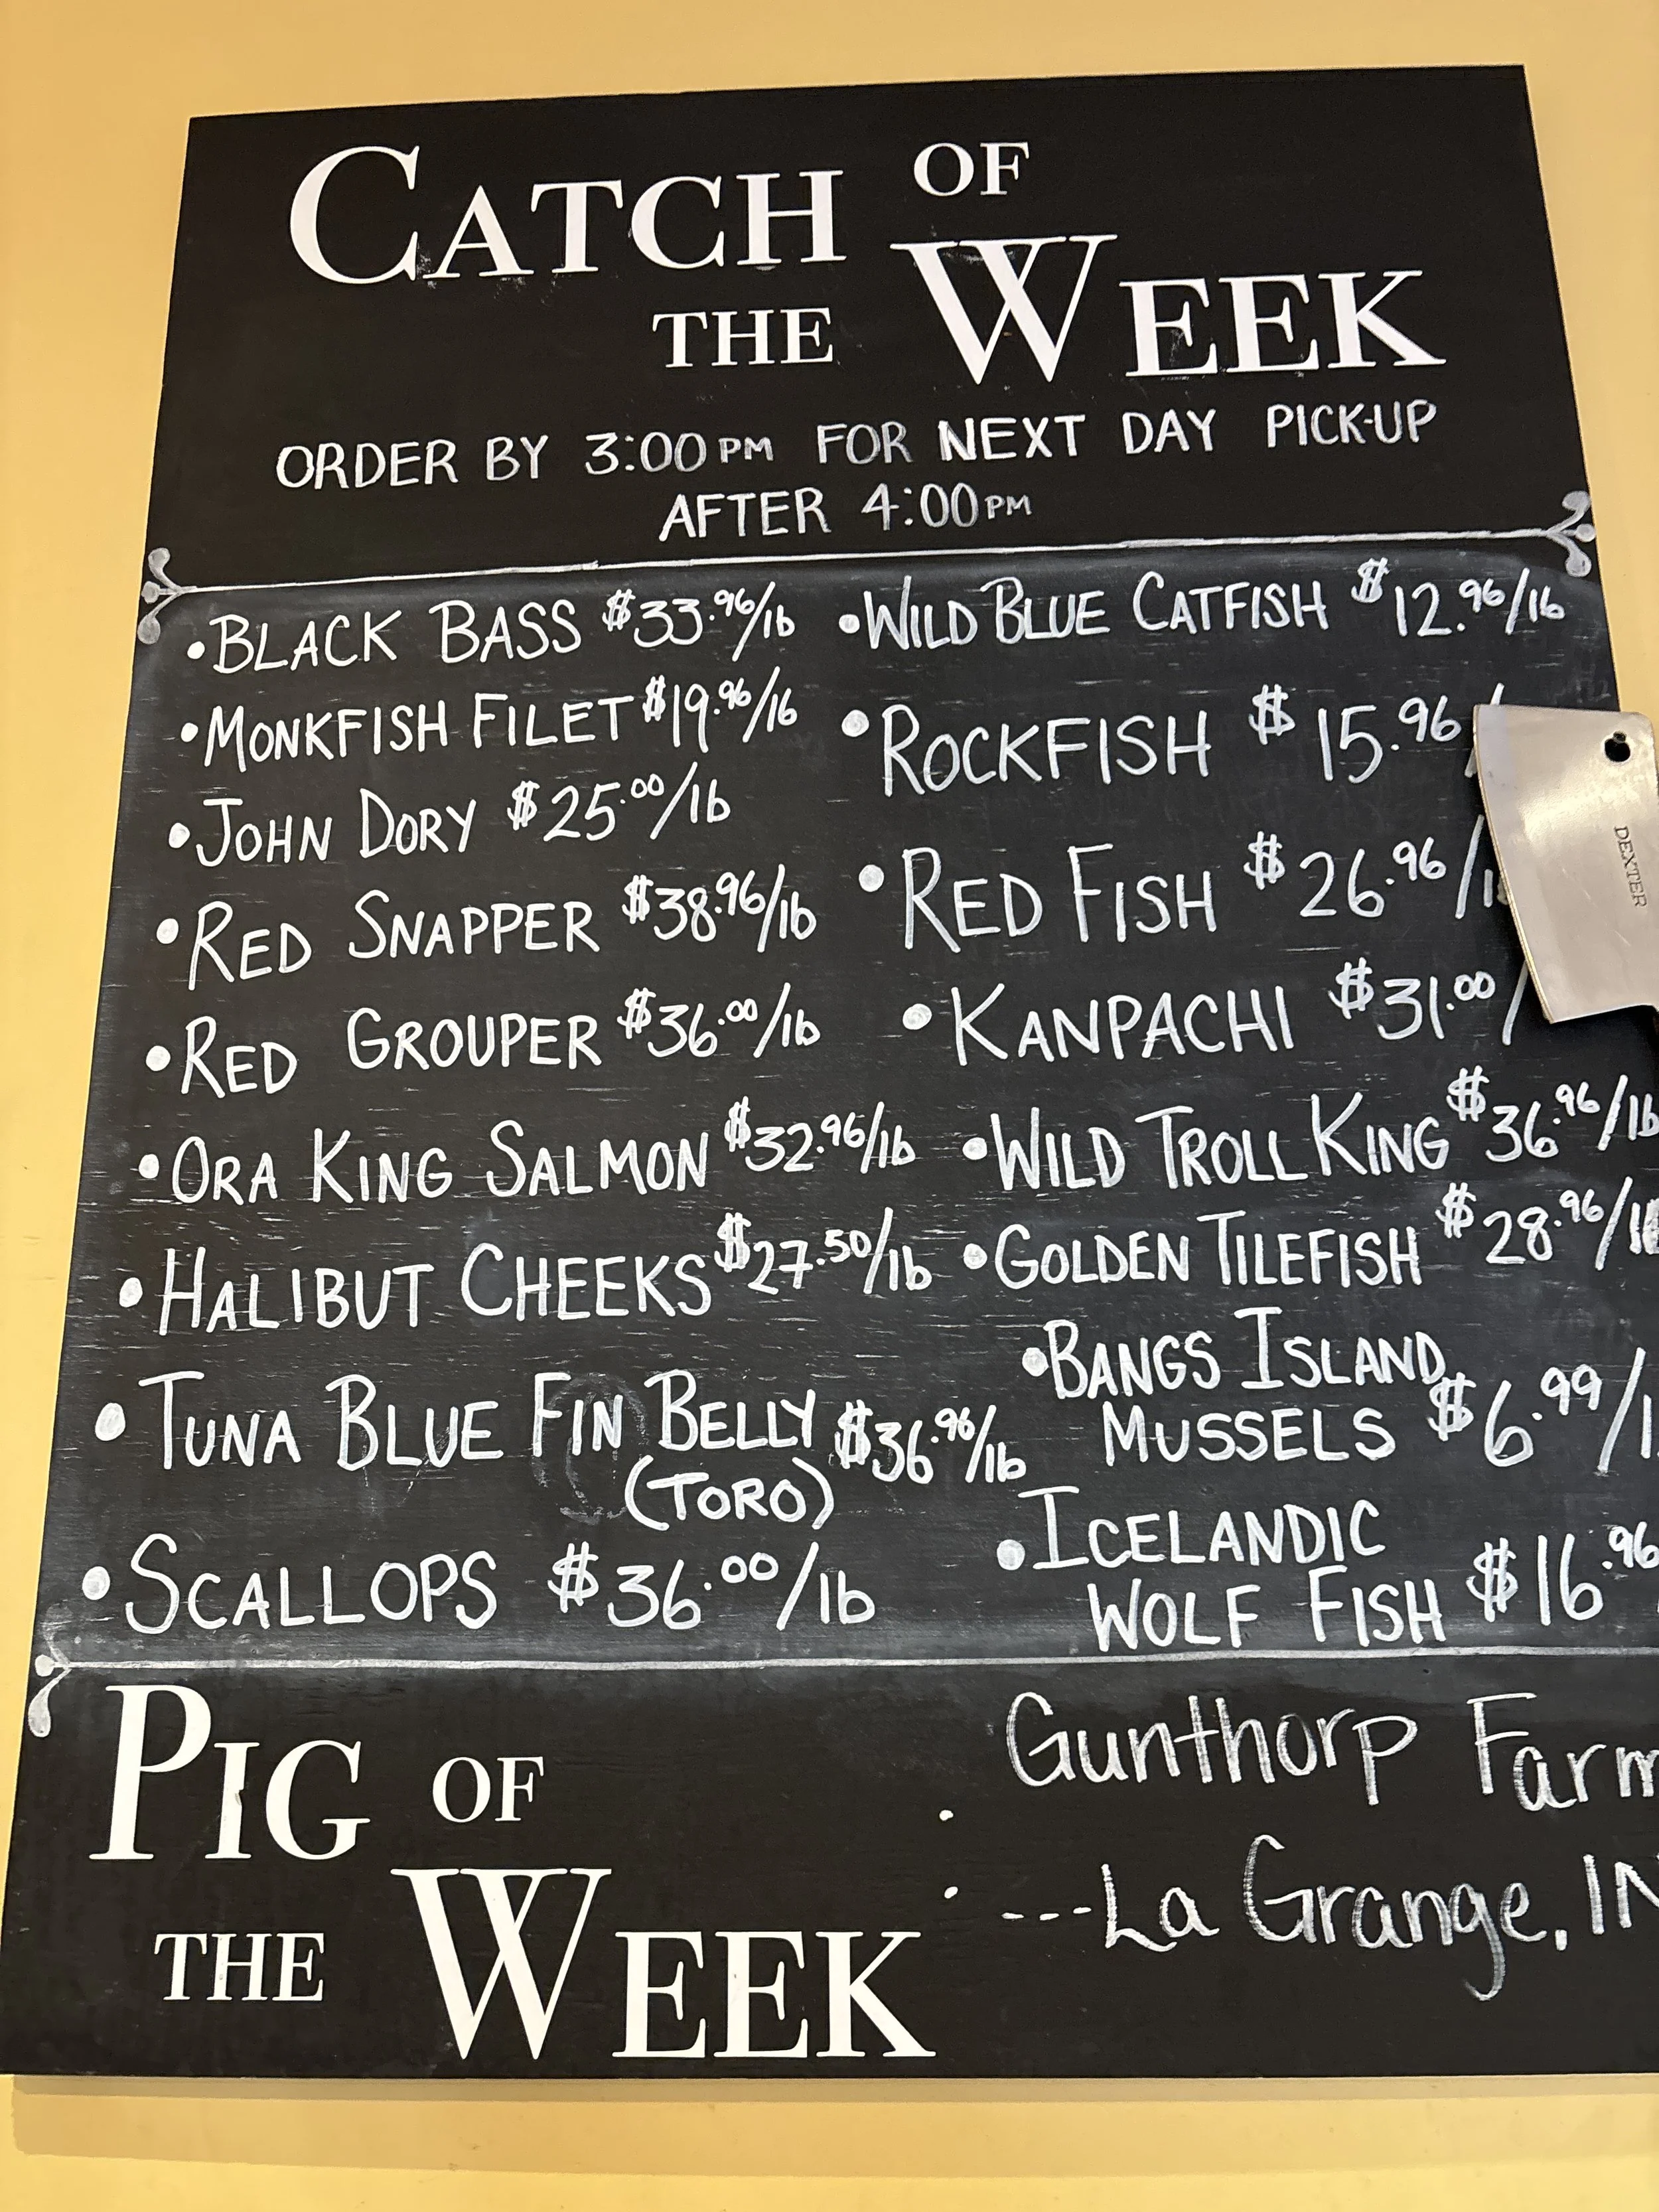 CATCH OF
THE WEEK
ORDER BY 3:00 PM FOR NEXT DAY PICK-UP
AFTER 4:00 PM
• BLACK BASS $33.96/lb
• MONKFISH FILET $19.96/lb
• JOHN DORY $25.00/lb
• RED SNAPPER $38.96/lb
• RED GROUPER $36.00/lb
• ORA KING SALMON $32.96/lb
• HALIBUT CHEEKS $27.50/lb
• TUNA BLUE FIN BELLY $36.96/lb
(TORO)
• SCALLOPS $36.00/lb
• WILD BLUE CATFISH $12.96/lb
• ROCKFISH $15.96/
• RED FISH $26.96/l
• KANPACHI $31.00/
• WILD TROLL KING $36.96/lb
• GOLDEN TILEFISH $28.96/l
• BANGS ISLAND
MUSSELS $6.99/l
• ICELANDIC
WOLF FISH $16.96
DEXTER
PIG OF
THE WEEK
: Gunthorp Farm
---La Grange, IN